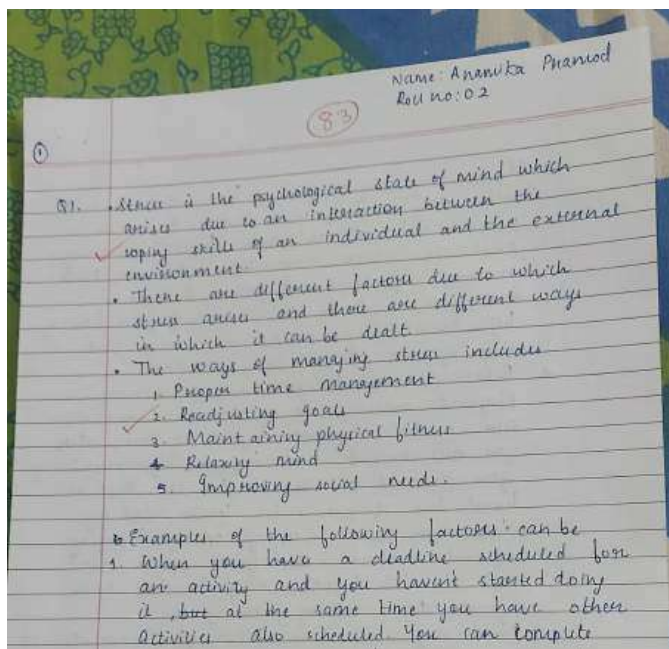 Name: Ananika Pramod
Roll no: 02
83
1
Q1. • Stress is the psychological state of mind which
arises due to an interaction between the
coping skills of an individual and the external
environment.
• There are different factors due to which
stress arises and there are different ways
in which it can be dealt.
• The ways of managing stress includes
1. Proper time management
2. Readjusting goals
3. Maintaining physical fitness
4 Relaxing mind
5. Improving social needs.
Examples of the following factors can be
1. When you have a deadline scheduled for
an activity and you havent started doing
it, but at the same time you have other
activities also scheduled. You can complete